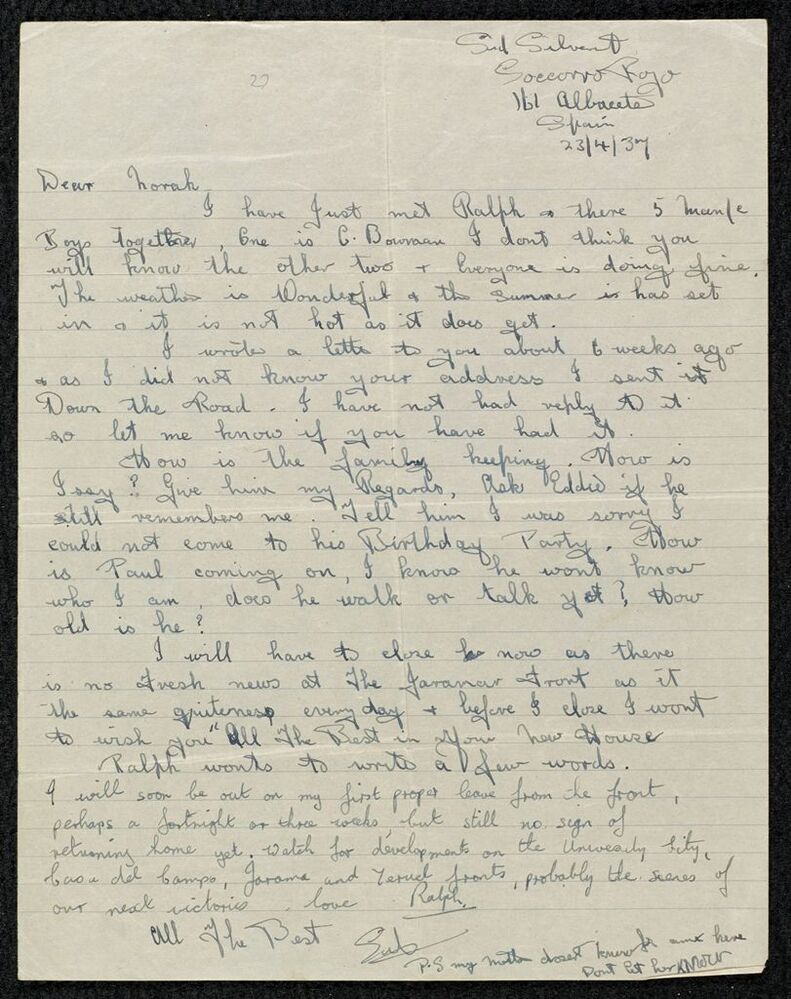 27
Sid Silvert
Soccorro Rojo
161 Albacete
Spain
23/4/37
Dear Norah
I have Just met Ralph & there 5 Manc
Boys Together, One is C. Bowman I dont think you
will know the other two & Everyone is doing fine.
The weather is Wonderful & the Summer is has set
in & it is not hot as it does get.
I wrote a letter to you about 6 weeks ago
& as I did not know your address I sent it
Down the Road. I have not had reply to it
so let me know if you have had it.
How is the family keeping. How is
Issy? Give him my Regards, Ask Eddie if he
still remembers me. Tell him I was sorry I
could not come to his Birthday Party. How
is Paul coming on, I know he wont know
who I am, does he walk or talk yet? How
old is he?
I will have to close now as there
is no Fresh news at The Jaramar Front as it
the same quiteness everyday & before I close I wont
to wish you "All The Best in Your New House
Ralph wonts to write a few words.
I will soon be out on my first proper leave from the front,
perhaps a fortnight or three weeks, but still no sign of
returning home yet. Watch for developments on the University City,
Casa del Campo, Jarama and Teruel fronts, probably the scenes of
our next victories. love Ralph.
All The Best Sid
P.S my mother dosent know I am here
Dont let her KNOW